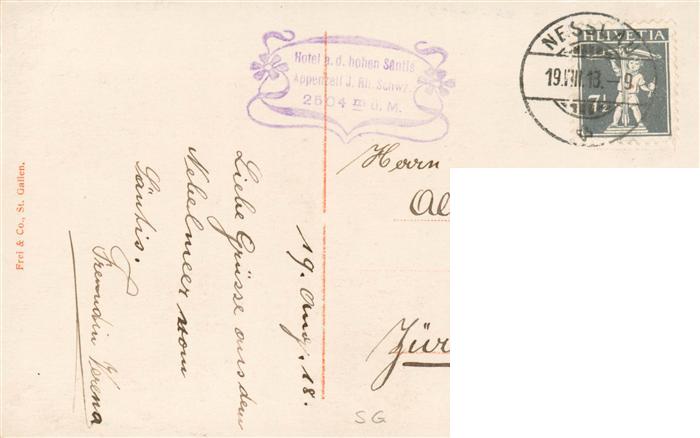 Hotel a. d. hohen Säntis
Appenzell J. Rh. Schwz.
2504 m ü. M.
NESSL
19.VIII.13.–9
HELVETIA
7½
Herrn
Al
Zür
19. Aug. 18.
Liebe Grüsse aus dem
Nebelmeer vom
Säntis.
Freundin Verena
Frei & Co., St. Gallen.
SG